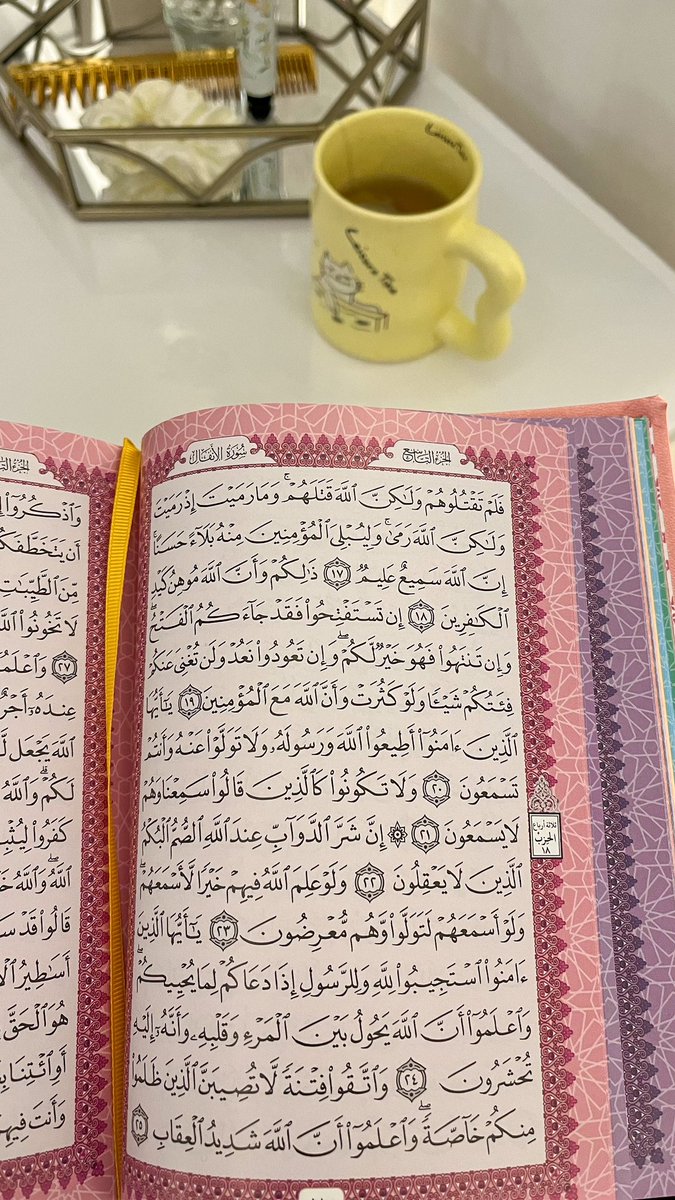 Leisure Tea
سُورَةُ الأَنفَالِ
الجُزْءُ التَّاسِعُ
فَلَمْ تَقْتُلُوهُمْ وَلَٰكِنَّ ٱللَّهَ قَتَلَهُمْ ۚ وَمَا رَمَيْتَ إِذْ رَمَيْتَ
وَلَٰكِنَّ ٱللَّهَ رَمَىٰ ۚ وَلِيُبْلِيَ ٱلْمُؤْمِنِينَ مِنْهُ بَلَآءً حَسَنًا ۚ
إِنَّ ٱللَّهَ سَمِيعٌ عَلِيمٌ ١٧ ذَٰلِكُمْ وَأَنَّ ٱللَّهَ مُوهِنُ كَيْدِ
ٱلْكَٰفِرِينَ ١٨ إِن تَسْتَفْتِحُوا۟ فَقَدْ جَآءَكُمُ ٱلْفَتْحُ ۖ
وَإِن تَنتَهُوا۟ فَهُوَ خَيْرٌ لَّكُمْ ۖ وَإِن تَعُودُوا۟ نَعُدْ وَلَن تُغْنِىَ عَنكُمْ
فِئَتُكُمْ شَيْـًٔا وَلَوْ كَثُرَتْ وَأَنَّ ٱللَّهَ مَعَ ٱلْمُؤْمِنِينَ ١٩ يَٰٓأَيُّهَا
ٱلَّذِينَ ءَامَنُوٓا۟ أَطِيعُوا۟ ٱللَّهَ وَرَسُولَهُۥ وَلَا تَوَلَّوْا۟ عَنْهُ وَأَنتُمْ
تَسْمَعُونَ ٢٠ وَلَا تَكُونُوا۟ كَٱلَّذِينَ قَالُوا۟ سَمِعْنَا وَهُمْ
لَا يَسْمَعُونَ ٢١ ۞ إِنَّ شَرَّ ٱلدَّوَآبِّ عِندَ ٱللَّهِ ٱلصُّمُّ ٱلْبُكْمُ
ٱلَّذِينَ لَا يَعْقِلُونَ ٢٢ وَلَوْ عَلِمَ ٱللَّهُ فِيهِمْ خَيْرًا لَّأَسْمَعَهُمْ ۖ
وَلَوْ أَسْمَعَهُمْ لَتَوَلَّوا۟ وَّهُم مُّعْرِضُونَ ٢٣ يَٰٓأَيُّهَا ٱلَّذِينَ
ءَامَنُوا۟ ٱسْتَجِيبُوا۟ لِلَّهِ وَلِلرَّسُولِ إِذَا دَعَاكُمْ لِمَا يُحْيِيكُمْ ۖ
وَٱعْلَمُوٓا۟ أَنَّ ٱللَّهَ يَحُولُ بَيْنَ ٱلْمَرْءِ وَقَلْبِهِۦ وَأَنَّهُۥٓ إِلَيْهِ
تُحْشَرُونَ ٢٤ وَٱتَّقُوا۟ فِتْنَةً لَّا تُصِيبَنَّ ٱلَّذِينَ ظَلَمُوا۟
مِنكُمْ خَآصَّةً ۖ وَٱعْلَمُوٓا۟ أَنَّ ٱللَّهَ شَدِيدُ ٱلْعِقَابِ ٢٥
ثلاثة أرباع
الحزب
١٨
وَٱذْكُرُوٓا۟
أَن يَتَخَطَّفَكُمُ
مِّنَ ٱلطَّيِّبَٰتِ
لَا تَخُونُوا۟ ٱللَّهَ
٢٧ وَٱعْلَمُوٓا۟
عِندَهُۥٓ أَجْرٌ
ٱللَّهَ يَجْعَل
لَكُمْ ۗ وَٱللَّهُ
كَفَرُوا۟ لِيُثْبِتُوكَ
ٱللَّهُ ۖ وَٱللَّهُ
قَالُوا۟ قَدْ
أَسَٰطِيرُ
هُوَ ٱلْحَقَّ
أَوِ ٱئْتِنَا
وَأَنتَ فِيهِمْ